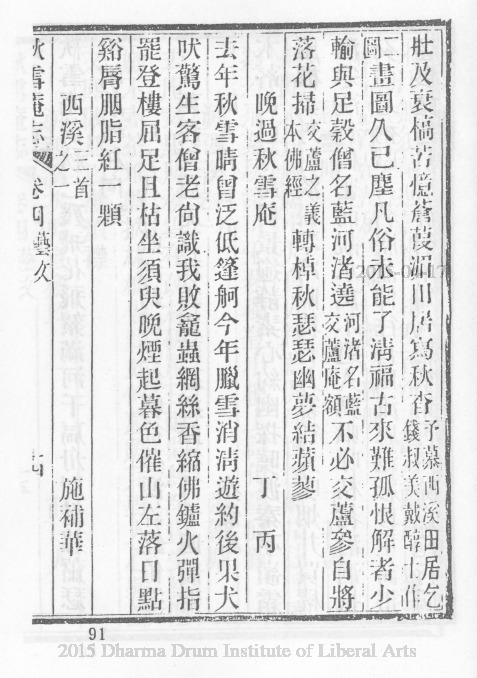 壯及衰槁苦憶蒼葭湄田居寫秋杳予慕西溪田居乞錢叔美戴醇士作
二圖畫圖久已塵凡俗未能了清福古來難孤恨解者少
輸與足穀僧名藍河渚遶河渚名藍交蘆庵額不必交蘆參自將
落花掃交蘆之義本佛經轉棹秋瑟瑟幽夢結蘋蓼
晚過秋雪庵 丁丙
去年秋雪晴曾泛低篷舸今年臘雪消清遊約後果犬
吠驚生客僧老尙識我敗龕蟲網絲香縮佛鑪火彈指
罷登樓屈足且枯坐須臾晚煙起暮色催山左落日點
谿脣胭脂紅一顆
西溪三首之一 施補華
秋雪庵志 卷四藝文
91
2015 Dharma Drum Institute of Liberal Arts